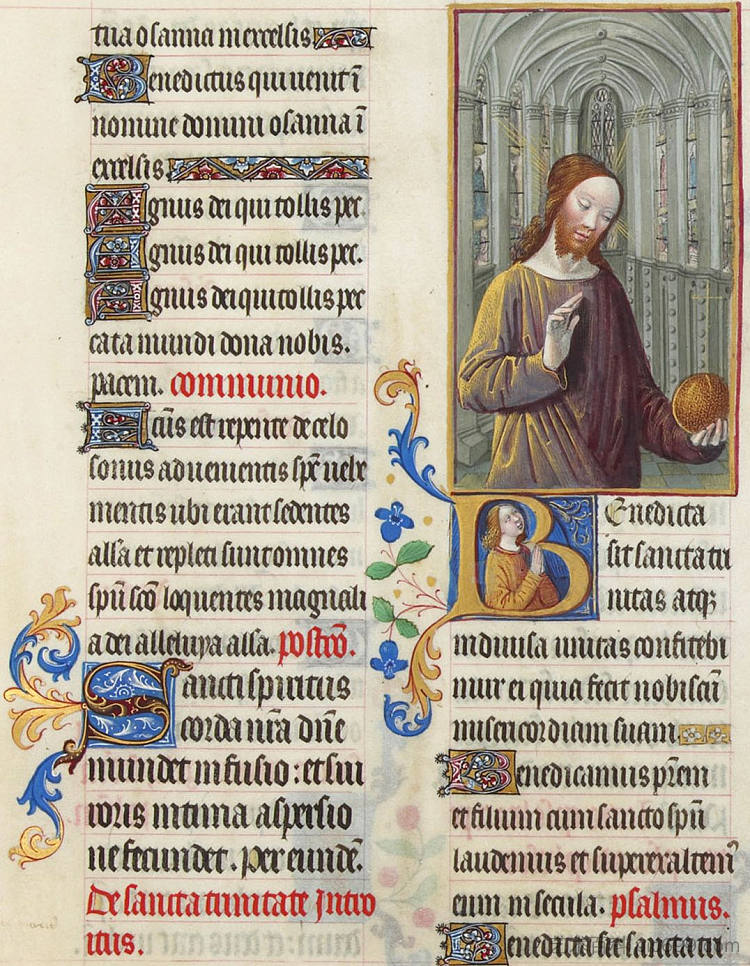 tua osanna in excelsis
Benedictus qui uenit ī
nomine domini osanna ī
excelsis.
Agnus dei qui tollis pec.
Agnus dei qui tollis pec.
Agnus dei qui tollis pec
cata mundi dona nobis.
pacem. communio.
Factus est repente de celo
sonus aduenientis spūs uehe
mentis ubi erant sedentes
alla et repleti sunt omnes
spū scō loquentes magnali
a dei alleluya alla. postcō.
Sancti spiritus
corda nr̄a dn̄e
mundet infusio: et sui
roris intima aspersio
ne fecundet. per eundē.
De sancta trinitate Intro
itus.
Benedicta
sit sancta tri
nitas atqꝫ
indiuisa unitas confitebi
mur ei quia fecit nobiscū
misericordiam suam
Benedicamus pr̄em
et filium cum sancto spū
laudemus et superexaltem
eum in secula. psalmus.
Benedicta sit sancta tri